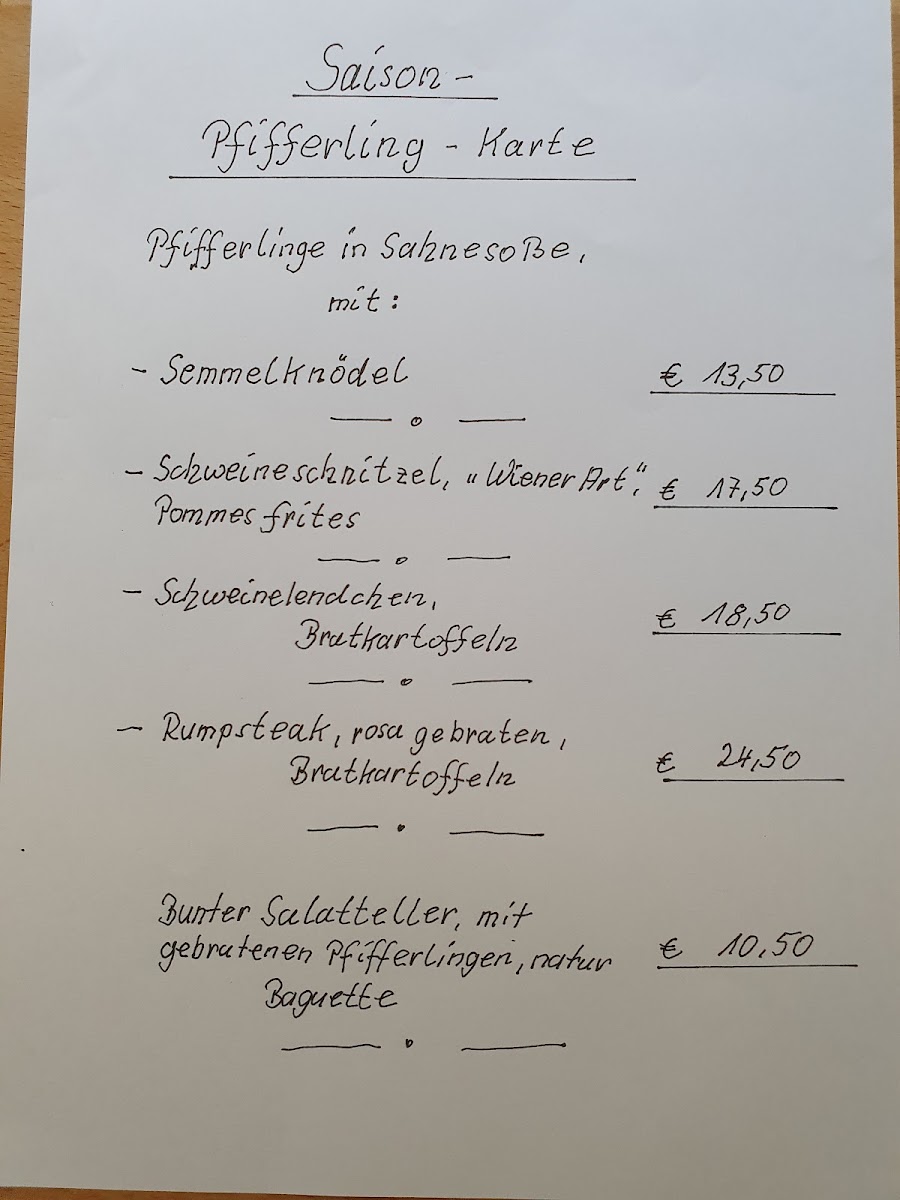 Saison -
Pfifferling - Karte
Pfifferlinge in Sahnesoße,
mit:
- Semmelknödel € 13,50
- Schweineschnitzel, „Wiener Art“. € 17,50
Pommes frites
- Schweinelendchen, € 18,50
Bratkartoffeln
- Rumpsteak, rosa gebraten,
Bratkartoffeln € 24,50
Bunter Salatteller, mit
gebratenen Pfifferlingen, natur € 10,50
Baguette